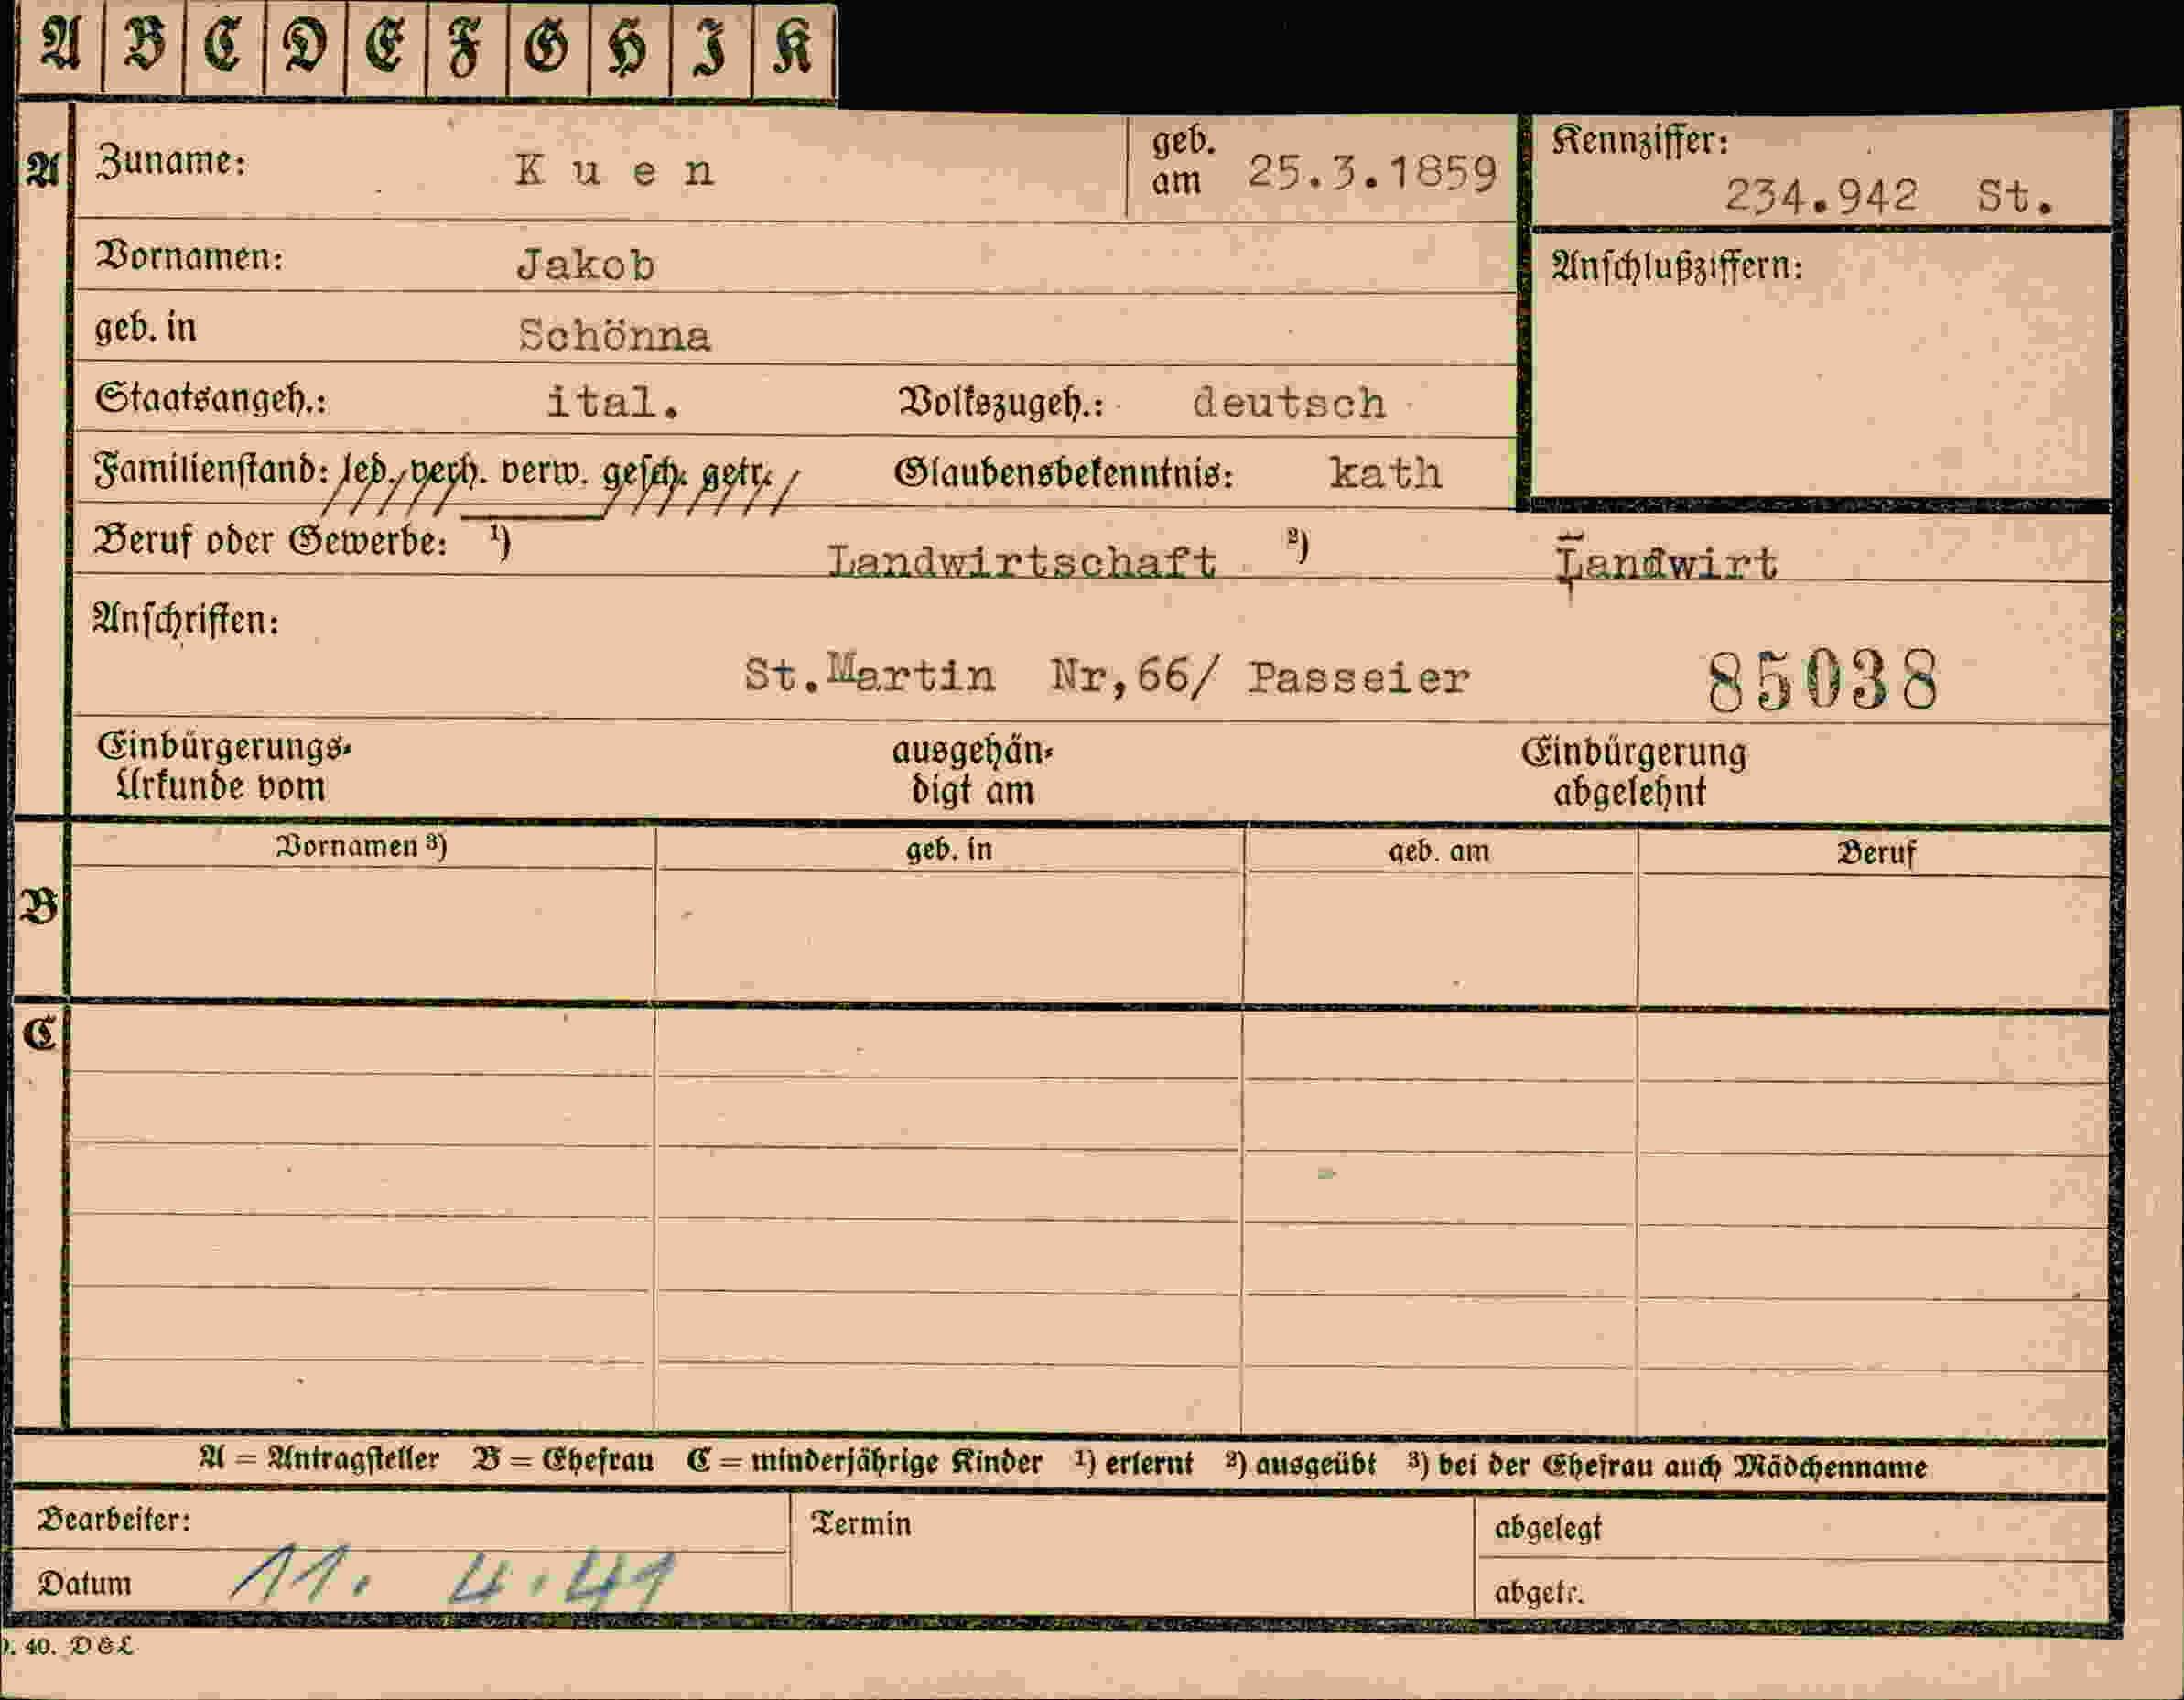 A B C D E F G H I K
A Zuname: Kuen geb. am 25.3.1859 Kennziffer: 234.942 St.
Vornamen: Jakob Anschlußziffern:
geb. in Schönna
Staatsangeh.: ital. Volkszugeh.: deutsch
Familienstand: led. verh. verw. gesch. getr. Glaubensbekenntnis: kath
Beruf oder Gewerbe: ¹) Landwirtschaft ²) Landwirt
Anschriften:
St.Martin Nr,66/ Passeier 85038
Einbürgerungs-Urkunde vom ausgehän-digt am Einbürgerung abgelehnt
Vornamen ³) geb. in geb. am Beruf
B
C
A = Antragsteller B = Ehefrau C = minderjährige Kinder ¹) erlernt ²) ausgeübt ³) bei der Ehefrau auch Mädchenname
Bearbeiter: Termin abgelegt
Datum 11. 4.41 abgetr.
40. D&L